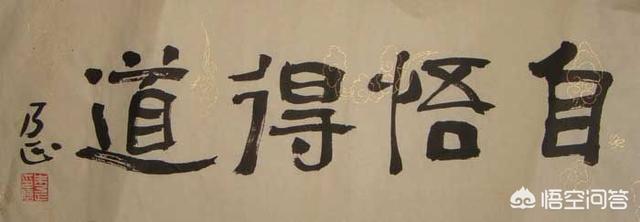 自悟得道
乃正
悟空问答